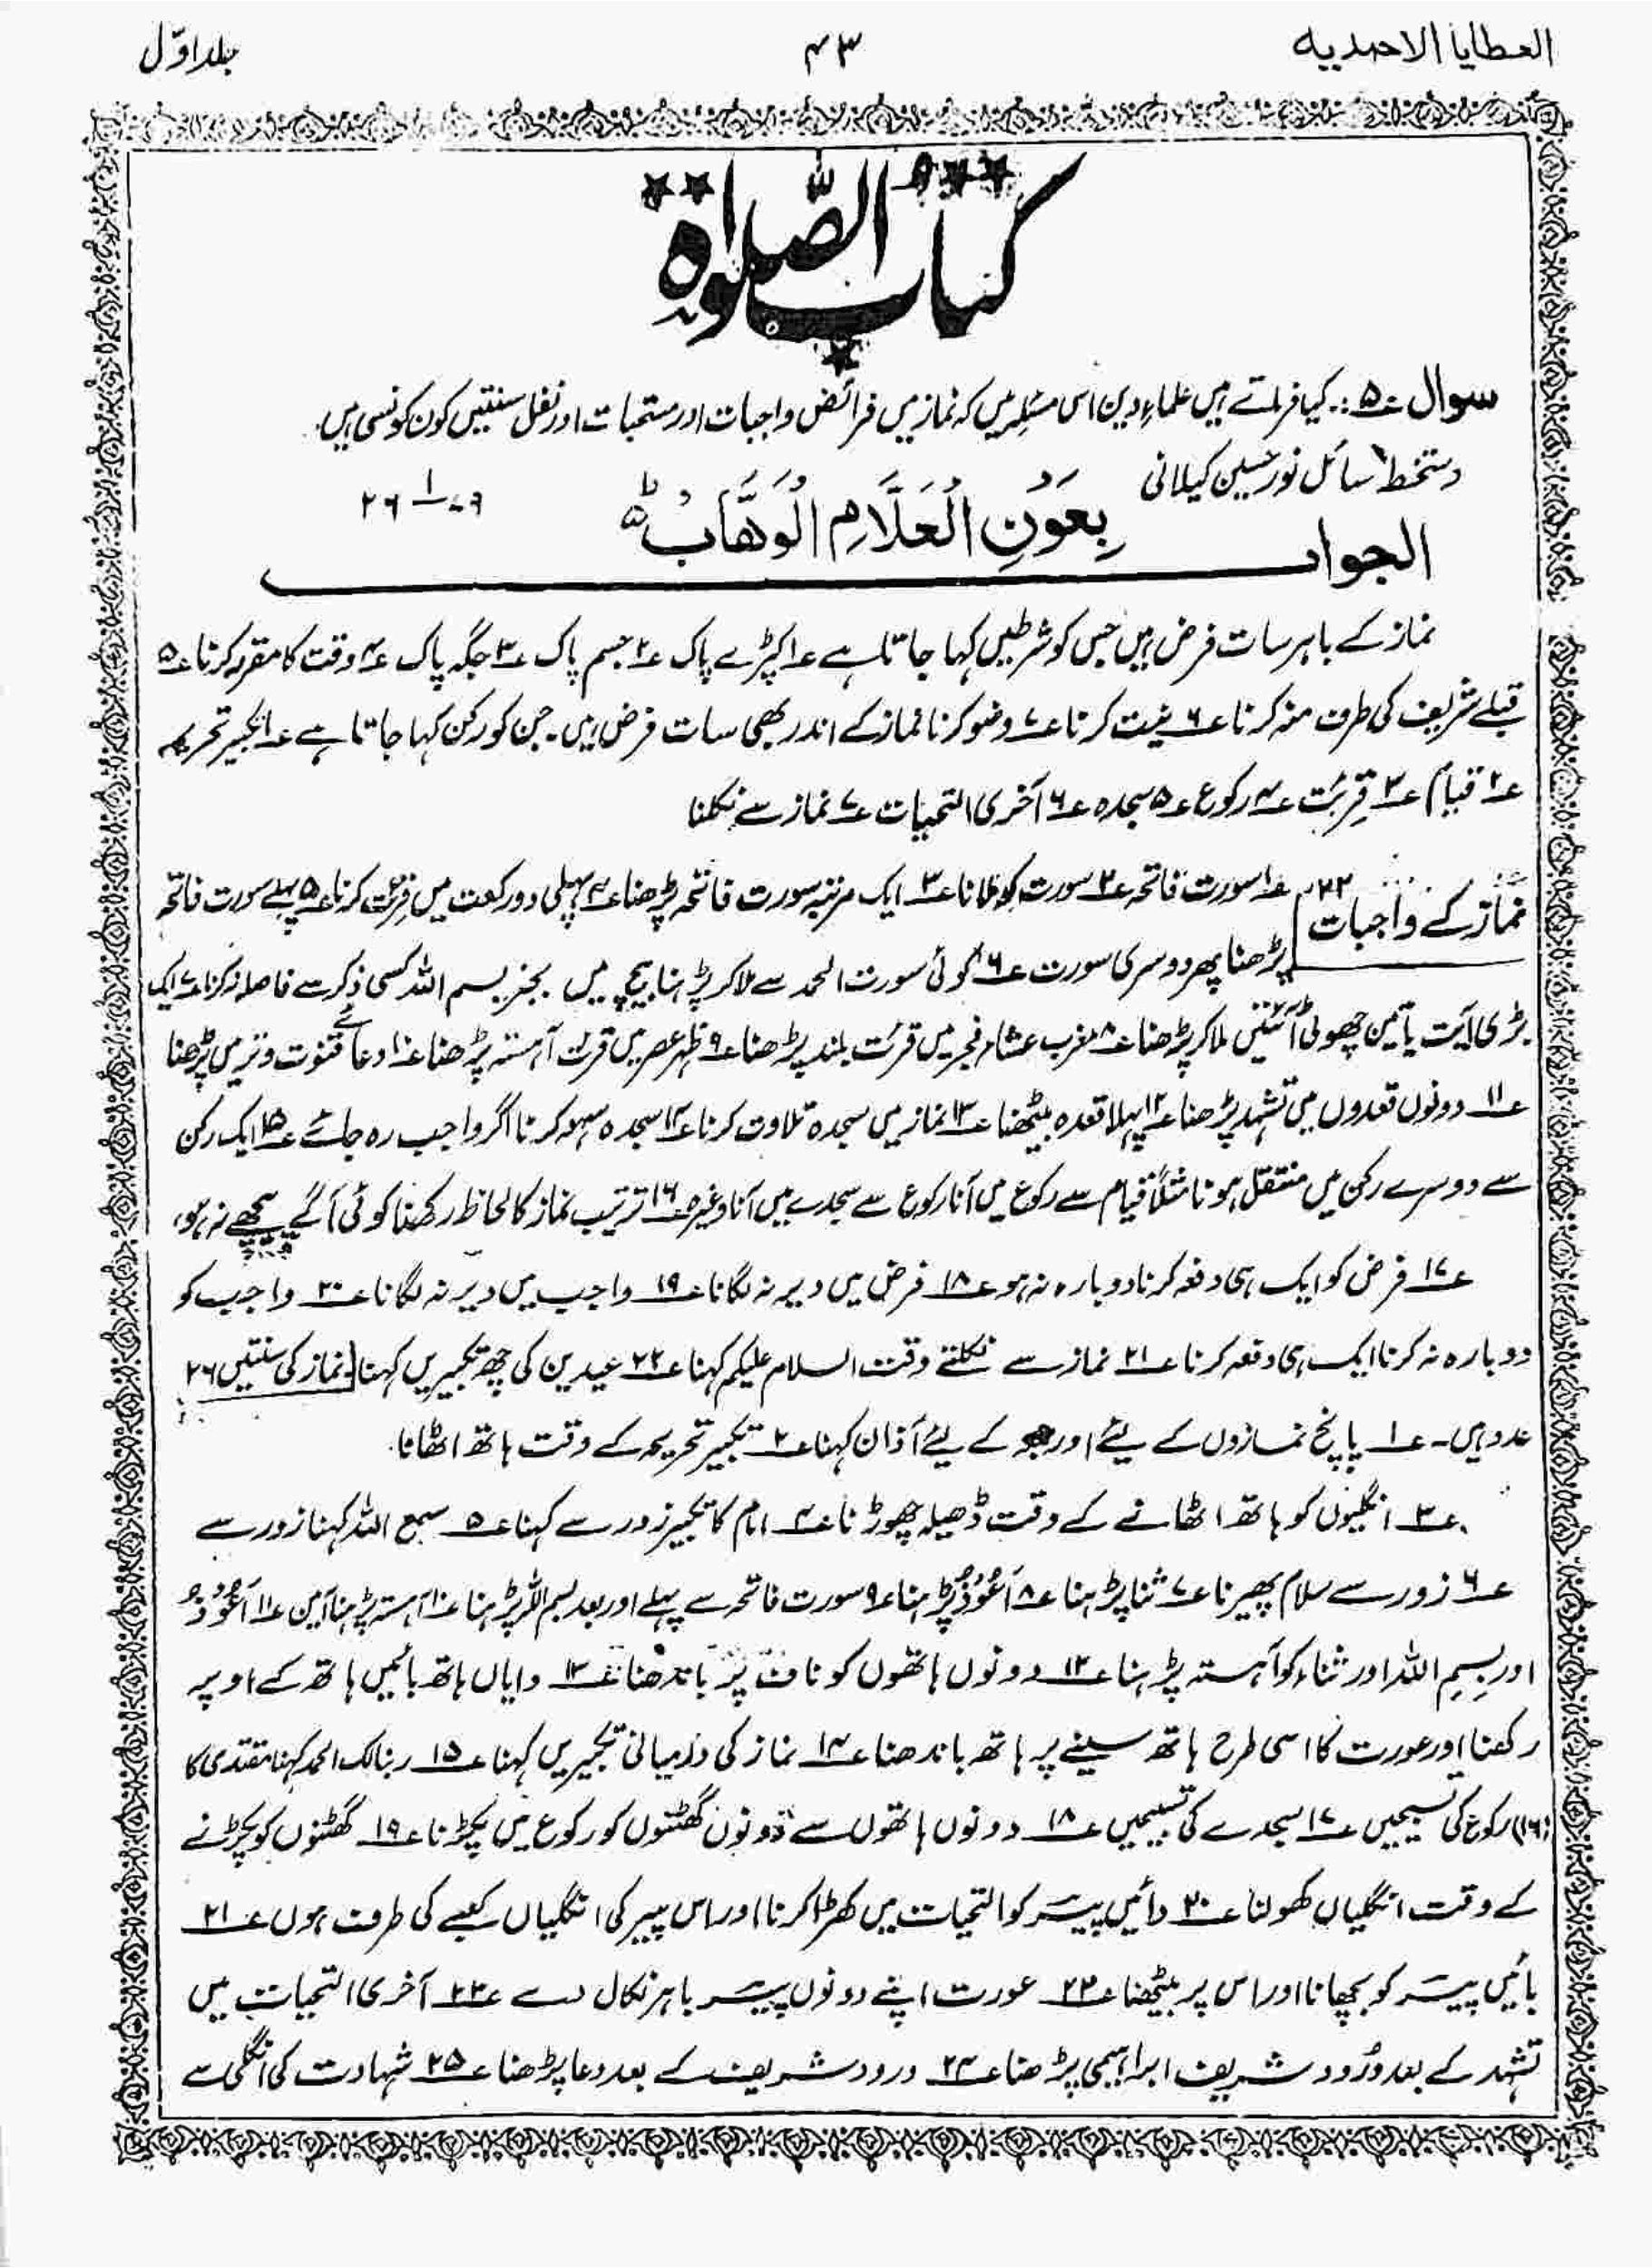 العطایا الاحمدیہ
۴۳
جلد اوّل
کتاب الصّلوٰۃ
سوال ؏۵:۔ کیا فرماتے ہیں علماءِ دین اس مسئلہ میں کہ نماز میں فرائض واجبات اور مستحبات اور نفل سنتیں کون کونسی ہیں۔
دستخط سائل نور حسین گیلانی
الجواب بِعَوْنِ الْعَلَّامِ الْوَھَّابْ ط
نماز کے باہر سات فرض ہیں جس کو شرطیں کہا جاتا ہے ؏۱ کپڑے پاک ؏۲ جسم پاک ؏۳ جگہ پاک ؏۴ وقت کا مقرر کرنا ؏۵
قبلے شریف کی طرف منہ کرنا ؏۶ نیت کرنا ؏۷ وضو کرنا نماز کے اندر بھی سات فرض ہیں۔ جن کو رکن کہا جاتا ہے ؏۱ تکبیر تحریمہ
؏۲ قیام ؏۳ قرئت ؏۴ رکوع ؏۵ سجدہ ؏۶ آخری التحیات ؏۷ نماز سے نکلنا
نماز کے واجبات ۲۲ ؏۱ سورت فاتحہ ؏۲ سورت کو ملانا ؏۳ ایک مرتبہ سورت فاتحہ پڑھنا ؏۴ پہلی دو رکعت میں قرئت کرنا ؏۵ پہلے سورت فاتحہ
پڑھنا پھر دوسری سورت ؏۶ کوئی سورت الحمد سے ملا کر پڑہنا بیچ میں بجز بسم اللہ کسی ذکر سے فاصلہ نہ کرنا ؏۷ ایک
بڑی آیت یا تین چھوٹی آئتیں ملا کر پڑھنا ؏۸ مغرب عشاء فجر میں قرئت بلند پڑھنا ؏۹ ظہر عصر میں قرئت آہستہ پڑھنا ؏۱۰ دعائے قنوت وتر میں پڑھنا
؏۱۱ دونوں قعدوں میں تشہد پڑھنا ؏۱۲ پہلا قعدہ بیٹھنا ؏۱۳ نماز میں سجدہ تلاوت کرنا ؏۱۴ سجدہ سہو کرنا اگر واجب رہ جائے ؏۱۵ ایک رکن
سے دوسرے رکن میں منتقل ہونا مثلاً قیام سے رکوع میں آنا رکوع سے سجدے میں آنا وغیرہ ؏۱۶ ترتیب نماز کا لحاظ رکھنا کوئی آگے پیچھے نہ ہو،
؏۱۷ فرض کو ایک ہی دفعہ کرنا دوبارہ نہ ہو ؏۱۸ فرض میں دیر نہ لگانا ؏۱۹ واجب میں دیر نہ لگانا ؏۲۰ واجب کو
دوبارہ نہ کرنا ایک ہی دفعہ کرنا ؏۲۱ نماز سے نکلتے وقت السلام علیکم کہنا ؏۲۲ عیدین کی چھ تکبیریں کہنا نماز کی سنتیں ۲۶
عدد ہیں۔ ؏۱ پانچ نمازوں کے لیئے اور کے لیئے آذان کہنا ؏۲ تکبیر تحریمہ کے وقت ہاتھ اٹھانا۔
؏۳ انگلیوں کو ہاتھ اٹھانے کے وقت ڈھیلہ چھوڑنا ؏۴ امام کا تکبیر زور سے کہنا ؏۵ سمع اللہ کہنا زور سے
؏۶ زور سے سلام پھیرنا ؏۷ ثنا پڑہنا ؏۸ اَعُوْذُ پڑہنا ؏۹ سورت فاتحہ سے پہلے اور بعد بسم اللہ پڑہنا ؏۱۰ آہستہ پڑہنا آمین ؏۱۱ اَعُوْذُ
اور بِسمِ اللہ اور ثناء کو آہستہ پڑہنا ؏۱۲ دونوں ہاتھوں کو ناف پر باندھنا ؏۱۳ دایاں ہاتھ بائیں ہاتھ کے اوپر
رکھنا اور عورت کا اسی طرح ہاتھ سینے پر ہاتھ باندھنا ؏۱۴ نماز کی درمیانی تکبیریں کہنا ؏۱۵ ربنا لک الحمد کہنا مقتدی کا
(۱۶) رکوع کی تسبیحیں ؏۱۷ سجدے کی تسبیحیں ؏۱۸ دونوں ہاتھوں سے دونوں گھٹنوں کو رکوع میں پکڑنا ؏۱۹ گھٹنوں کو پکڑنے
کے وقت انگلیاں کھولنا ؏۲۰ دائیں پیر کو التحیات میں کھڑا کرنا اور اس پیر کی انگلیاں کعبے کی طرف ہوں ؏۲۱
بائیں پیر کو بچھانا اور اس پر بیٹھنا ؏۲۲ عورت اپنے دونوں پیر باہر نکال دے ؏۲۳ آخری التحیات میں
تشہد کے بعد دُرود شریف ابراہیمی پڑھنا ؏۲۴ درود شریف کے بعد دعا پڑھنا ؏۲۵ شہادت کی انگلی سے